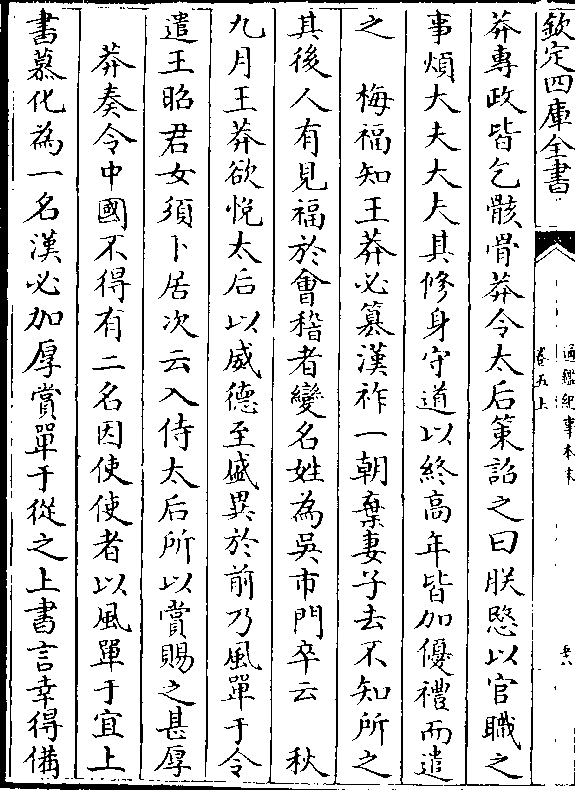 欽定四庫全書
通鑑紀事本末
卷五上
莽專政皆乞骸骨莽令太后策詔之曰朕愍以官職之
事煩大夫大夫其修身守道以終高年皆加優禮而遣
之　梅福知王莽必篡漢祚一朝棄妻子去不知所之
其後人有見福於會稽者變名姓為吳市門卒云　秋
九月王莽欲悅太后以威德至盛異於前乃風單于令
遣王昭君女須卜居次云入侍太后所以賞賜之甚厚
莽奏令中國不得有二名因使使者以風單于宜上
書慕化為一名漢必加厚賞單于從之上書言幸得備